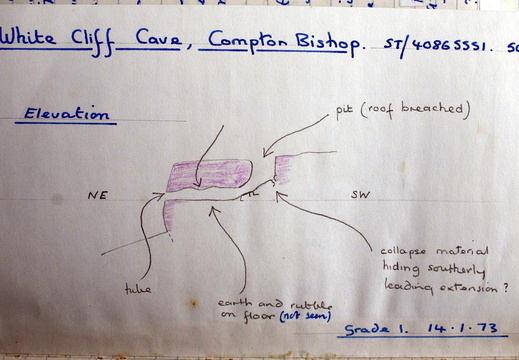 White Cliff Cave, Compton Bishop. ST/40865551.
Elevation
pit (roof breached)
NE
SW
collapse material
hiding southerly
leading extension?
tube
earth and rubble
on floor (not seen)
Grade 1. 14.1.73